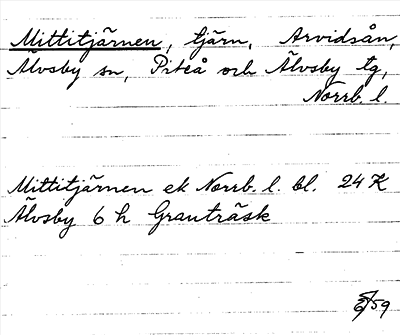 Mittitjärnen, tjärn, Arvidsån,
Älvsby sn, Piteå och Älvsby tg,
Norrb. l.
Mittitjärnen ek Norrb. l. bl. 24 K
Älvsby 6 h Granträsk
59